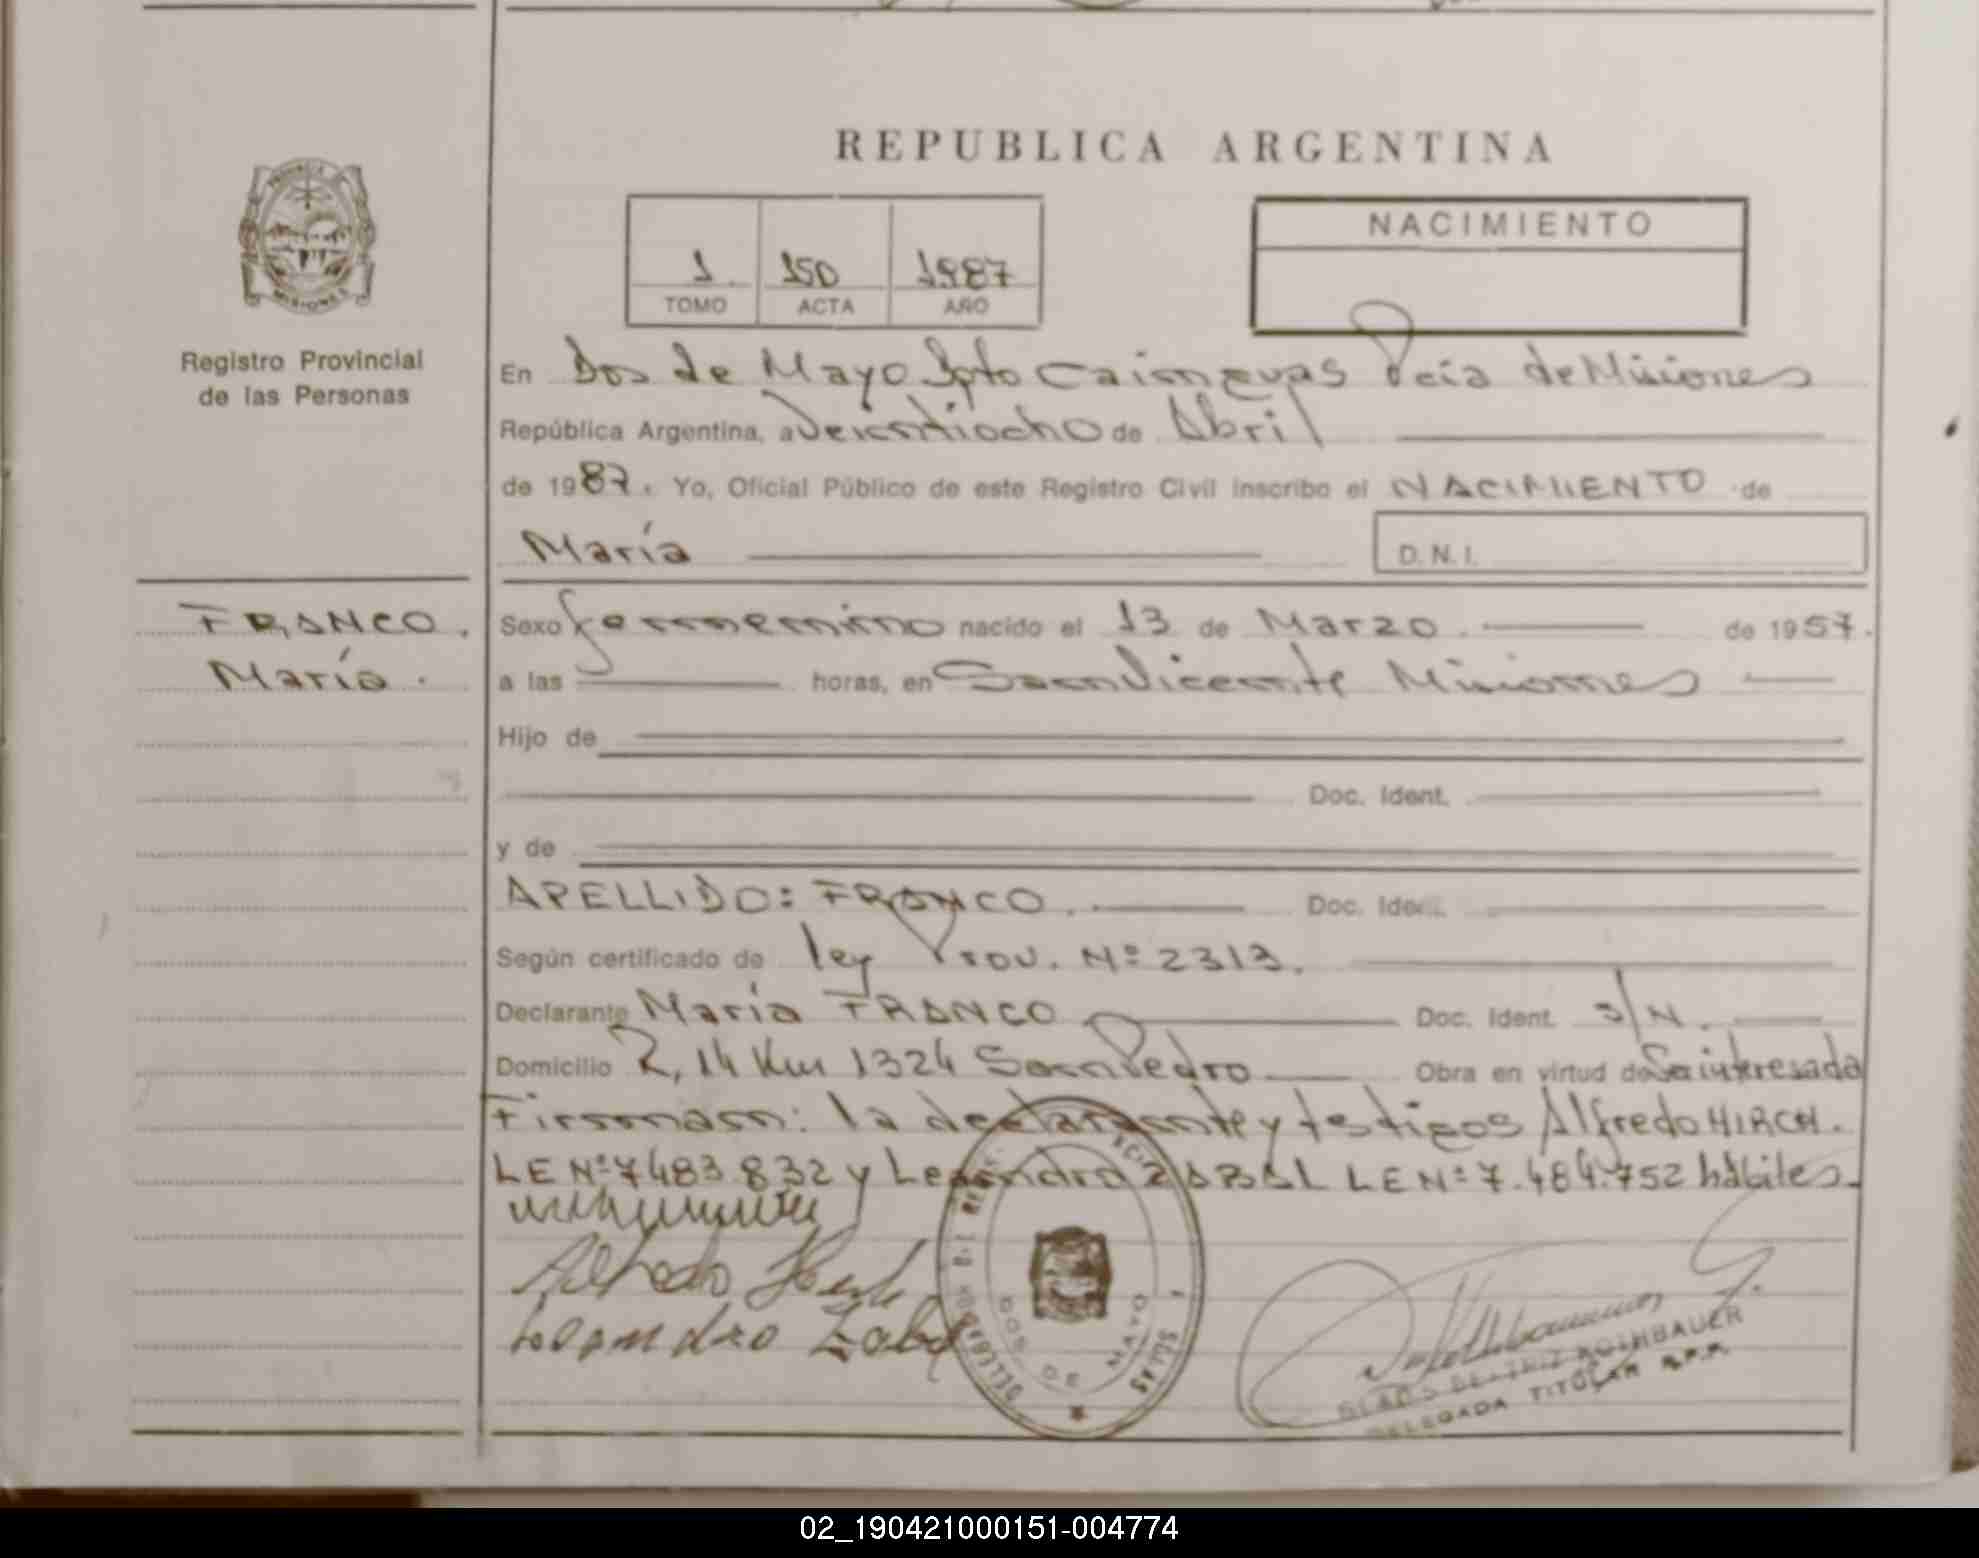 REPUBLICA ARGENTINA
NACIMIENTO
1 150 1987
TOMO ACTA AÑO
PROVINCIA
MISIONES
Registro Provincial
de las Personas
En Dos de Mayo Dpto Cainguas Pcia de Misiones
República Argentina, a Veintiocho de Abril
de 1987. Yo, Oficial Público de este Registro Civil inscribo el NACIMIENTO de
María
D. N. I.
FRANCO.
María.
Sexo femenino nacido el 13 de Marzo. de 1957.
a las horas, en San Vicente Misiones
Hijo de
Doc. Ident.
y de
APELLIDO: FRANCO. Doc. Ident.
Según certificado de ley Prov. Nº 2313.
Declarante María FRANCO Doc. Ident. S/N.
Domicilio R, 14 Km 1324 San Pedro Obra en virtud de La interesada
Firman: la declarante y testigos Alfredo HIRCH.
LE Nº 7483.832 y Leandro ZABAL LE Nº 7.484.752 hábiles.
Alfredo
Leandro
DOS DE MAYO
GLADIS BEATRIZ ROTHBAUER
DELEGADA TITULAR R.P.P.
02_190421000151-004774